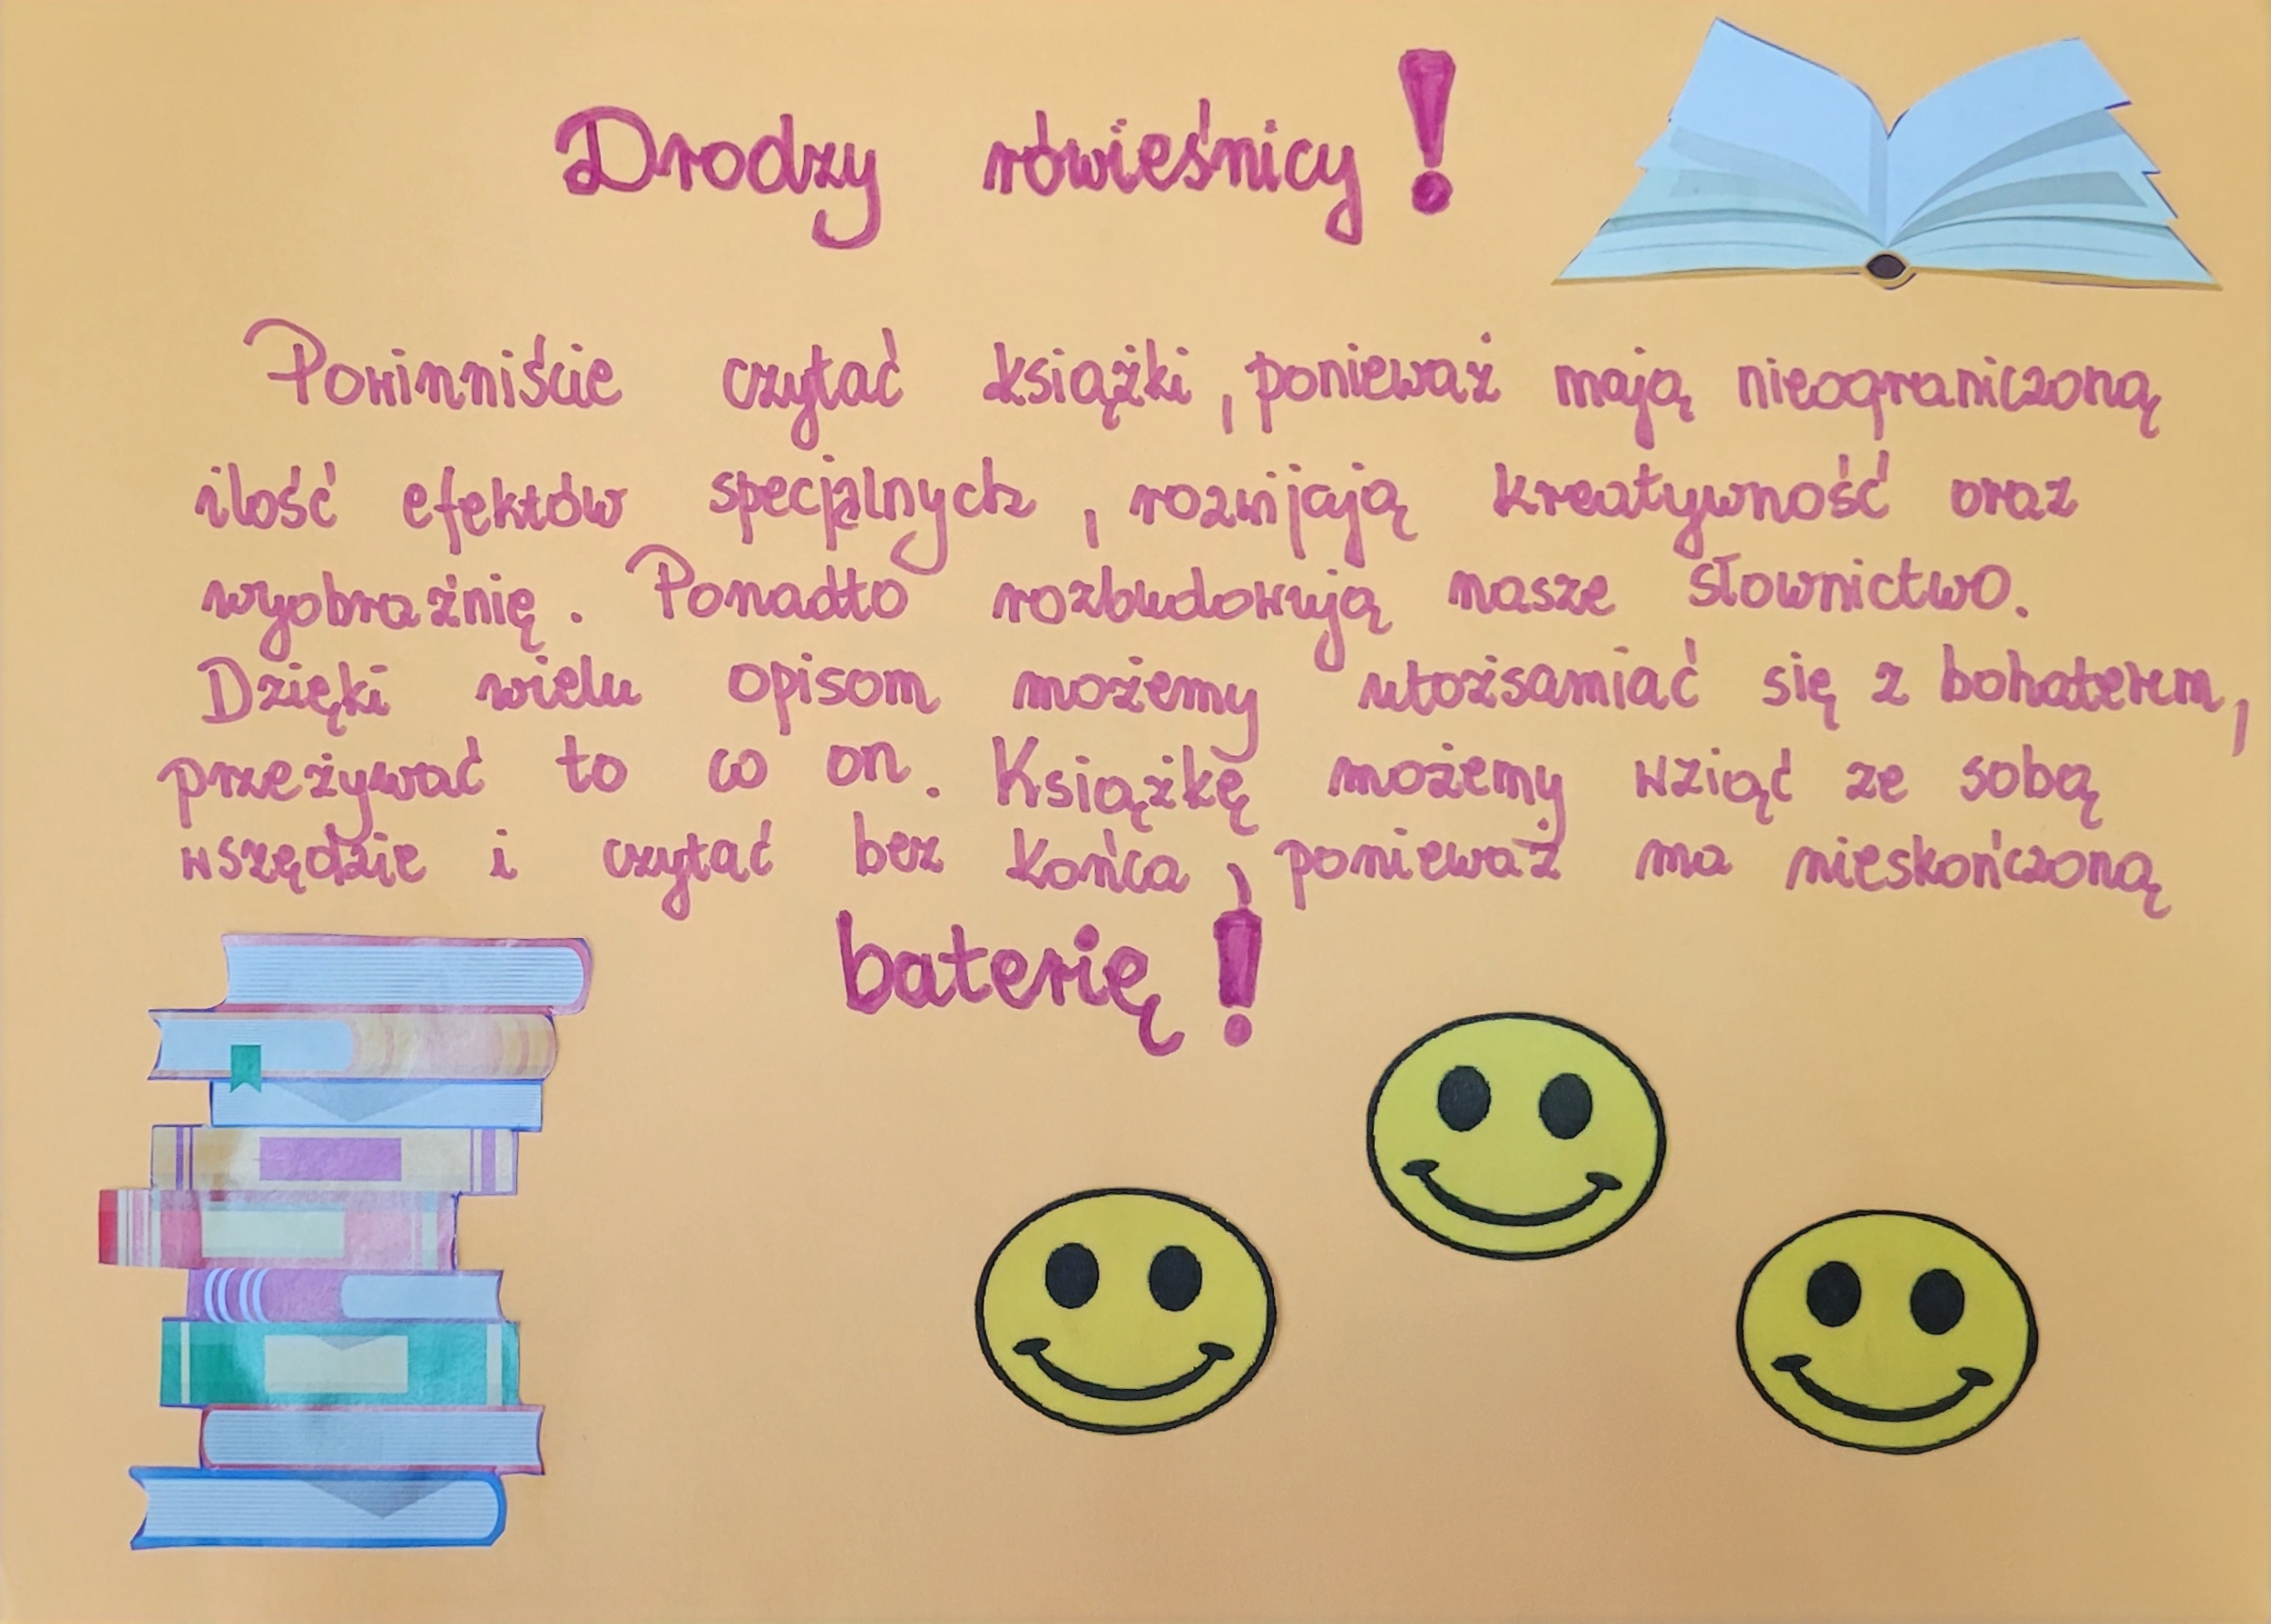 Drodzy rówieśnicy!
Powinniście czytać książki, ponieważ mają nieograniczoną
ilość efektów specjalnych, rozwijają kreatywność oraz
wyobraźnię. Ponadto rozbudowują nasze słownictwo.
Dzięki wielu opisom możemy utożsamiać się z bohaterem,
przeżywać to co on. Książkę możemy wziąć ze sobą
wszędzie i czytać bez końca, ponieważ ma nieskończoną
baterię!